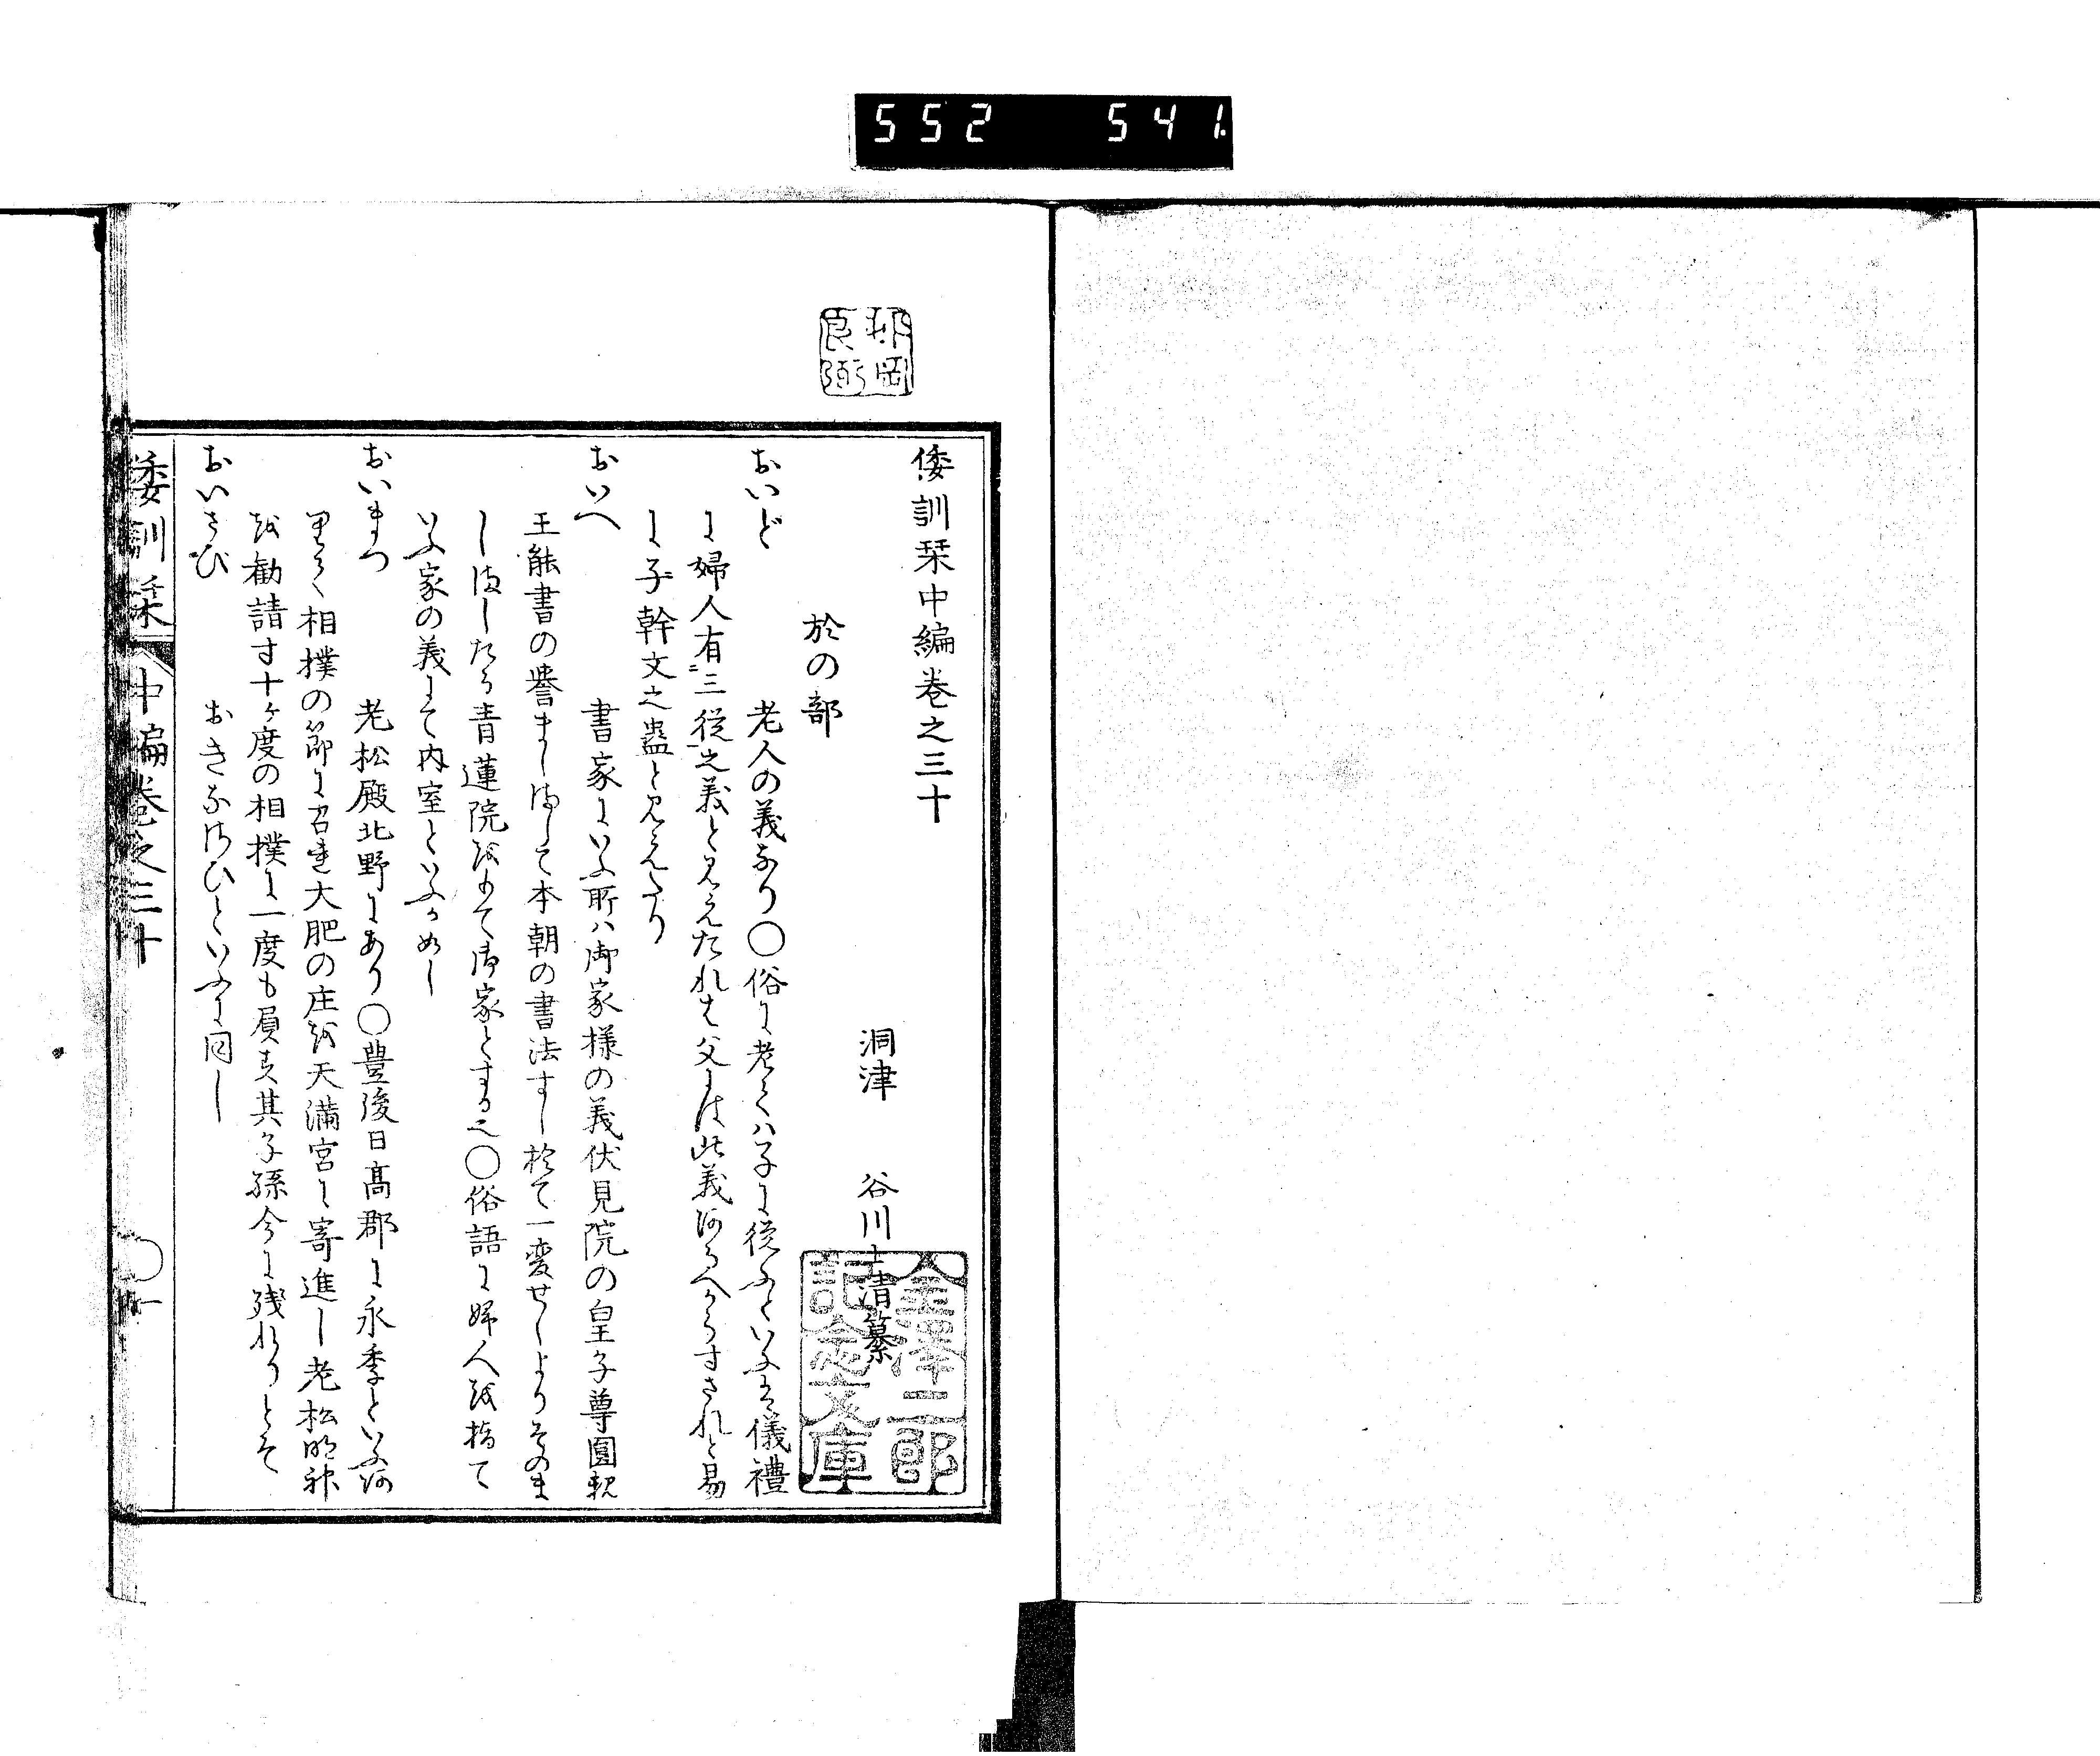 552 541
倭訓栞中編巻之三十
洞津 谷川士清纂
於の部
おいど 老人の義なり〇俗に老てハ子に従ふといふは儀禮
に婦人有三従之義と見えたれは父には此義あるへからすされと易
に子幹文之蠱と見えたり
おいへ 書家にいふ所ハ御家様の義伏見院の皇子尊圓親
王能書の誉ましまして本朝の書法すし於て一変せしよりそのま
しましたる青蓮院をもて御家とする也〇俗語に婦人を指て
いふ家の義にて内室といふか如し
おいまつ 老松殿北野にあり〇豊後日高郡に永季といふ
相撲の節に召き大肥の庄を天満宮に寄進し老松明神
を勧請す十ヶ度の相撲に一度も負す其子孫今に残れりとそ
おいさび おきなさひといふに同し
倭訓栞 中編巻之三十 〇一
金澤二郎
記念文庫
岡
良弼